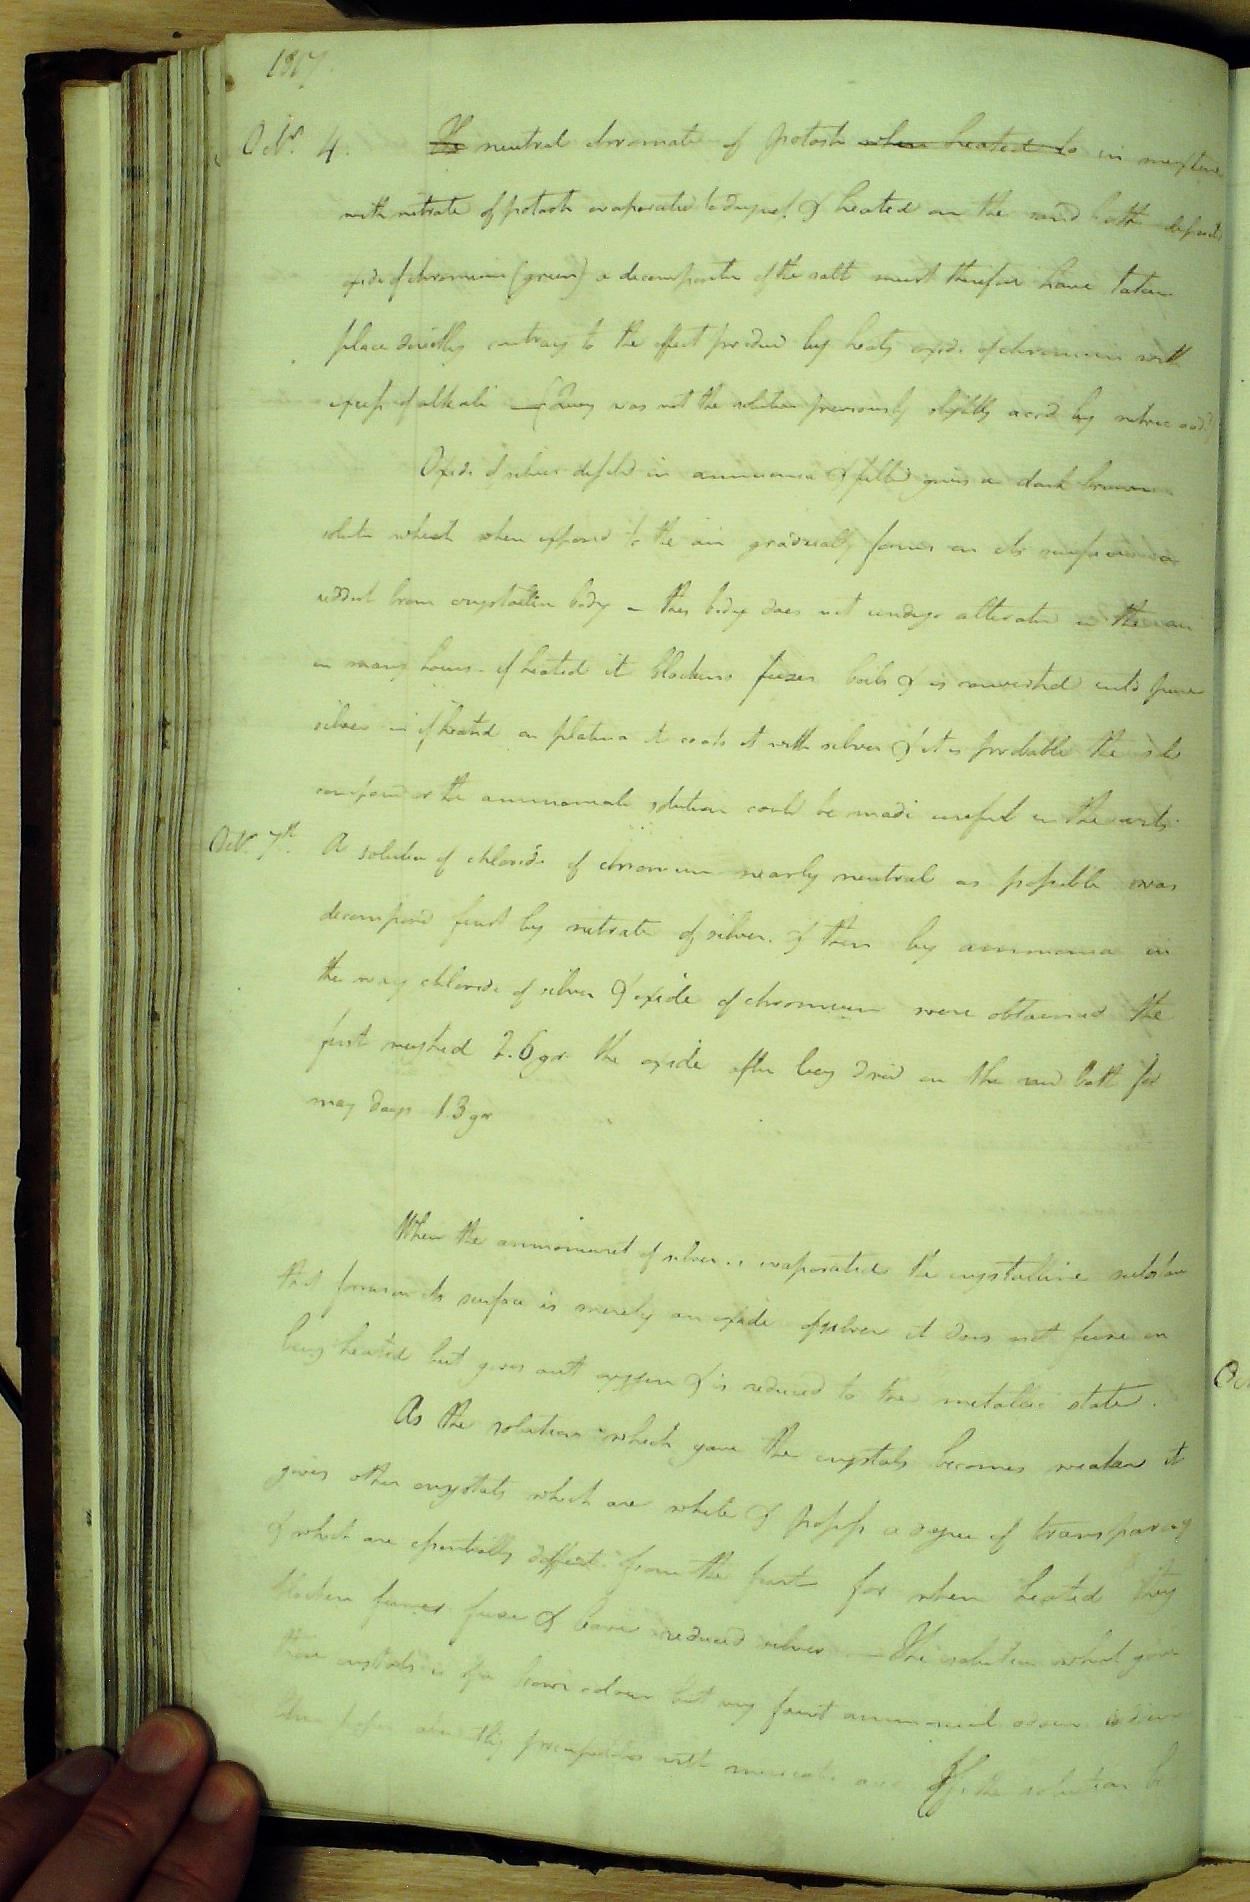 1817
Octr. 4. ~~The~~ neutral chromate of potash ~~when heated to~~ in mixture
with nitrate of potash evaporated to dryness & heated on the sand bath deposits
oxide of chromium (green) a decomposition of the salt must therefore have taken
place directly contrary to the effect produced by heatg oxide of chromium with
excess of alkali — (Query was not the solution previously slightly acid by nitric acid?)
Oxide of silver dissolved in ammonia & filtd gives a dark brown
solutn which when exposed to the air gradually forms on its surface a
reddish brown crystalline body – this body does not undergo alteration in the air
in many hours – if heated it blackens fuses boils & is converted into pure
silver – if heated on platina it coats it with silver & it is probable the
compound or the ammoniacal solution could be made useful in the arts
Octr. 7th. A solution of chloride of chromium nearly neutral as possible was
decomposd first by nitrate of silver. & then by ammonia in
the way chloride of silver & oxide of chromium were obtained the
first weighed 2.6 gr the oxide after being dried on the sand bath for
many days 1.3 gr
When the ammoniuret of silver is evaporated the crystalline substance
that forms on its surface is merely an oxide of silver it does not fuse on
being heated but gives out oxygen & is reduced to the metallic state.
As the solution which gave the crystals becomes weaker it
gives other crystals which are white & possess a degree of transparency
& which are essentially different from the first for when heated they
blacken fumes fuse & leave reduced silver — The solution which gave
these crystals is of a brown colour but very faint ammoniacal odour
paper precipitates with muriatic acid If the solution be